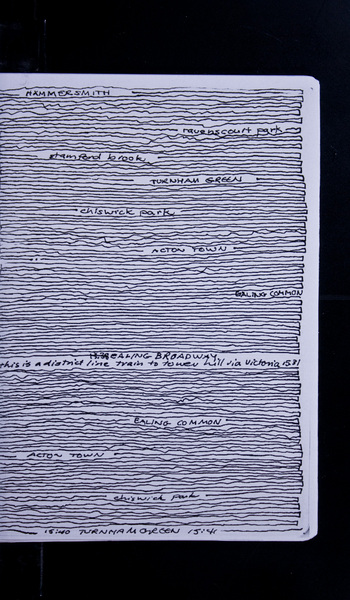 HAMMERSMITH
ravenscourt park
stamford brook
TURNHAM GREEN
chiswick park
ACTON TOWN
EALING COMMON
EALING BROADWAY
this is a district line train to tower hill via victoria 1531
EALING COMMON
ACTON TOWN
chiswick park
15:40 TURNHAM GREEN 15:41